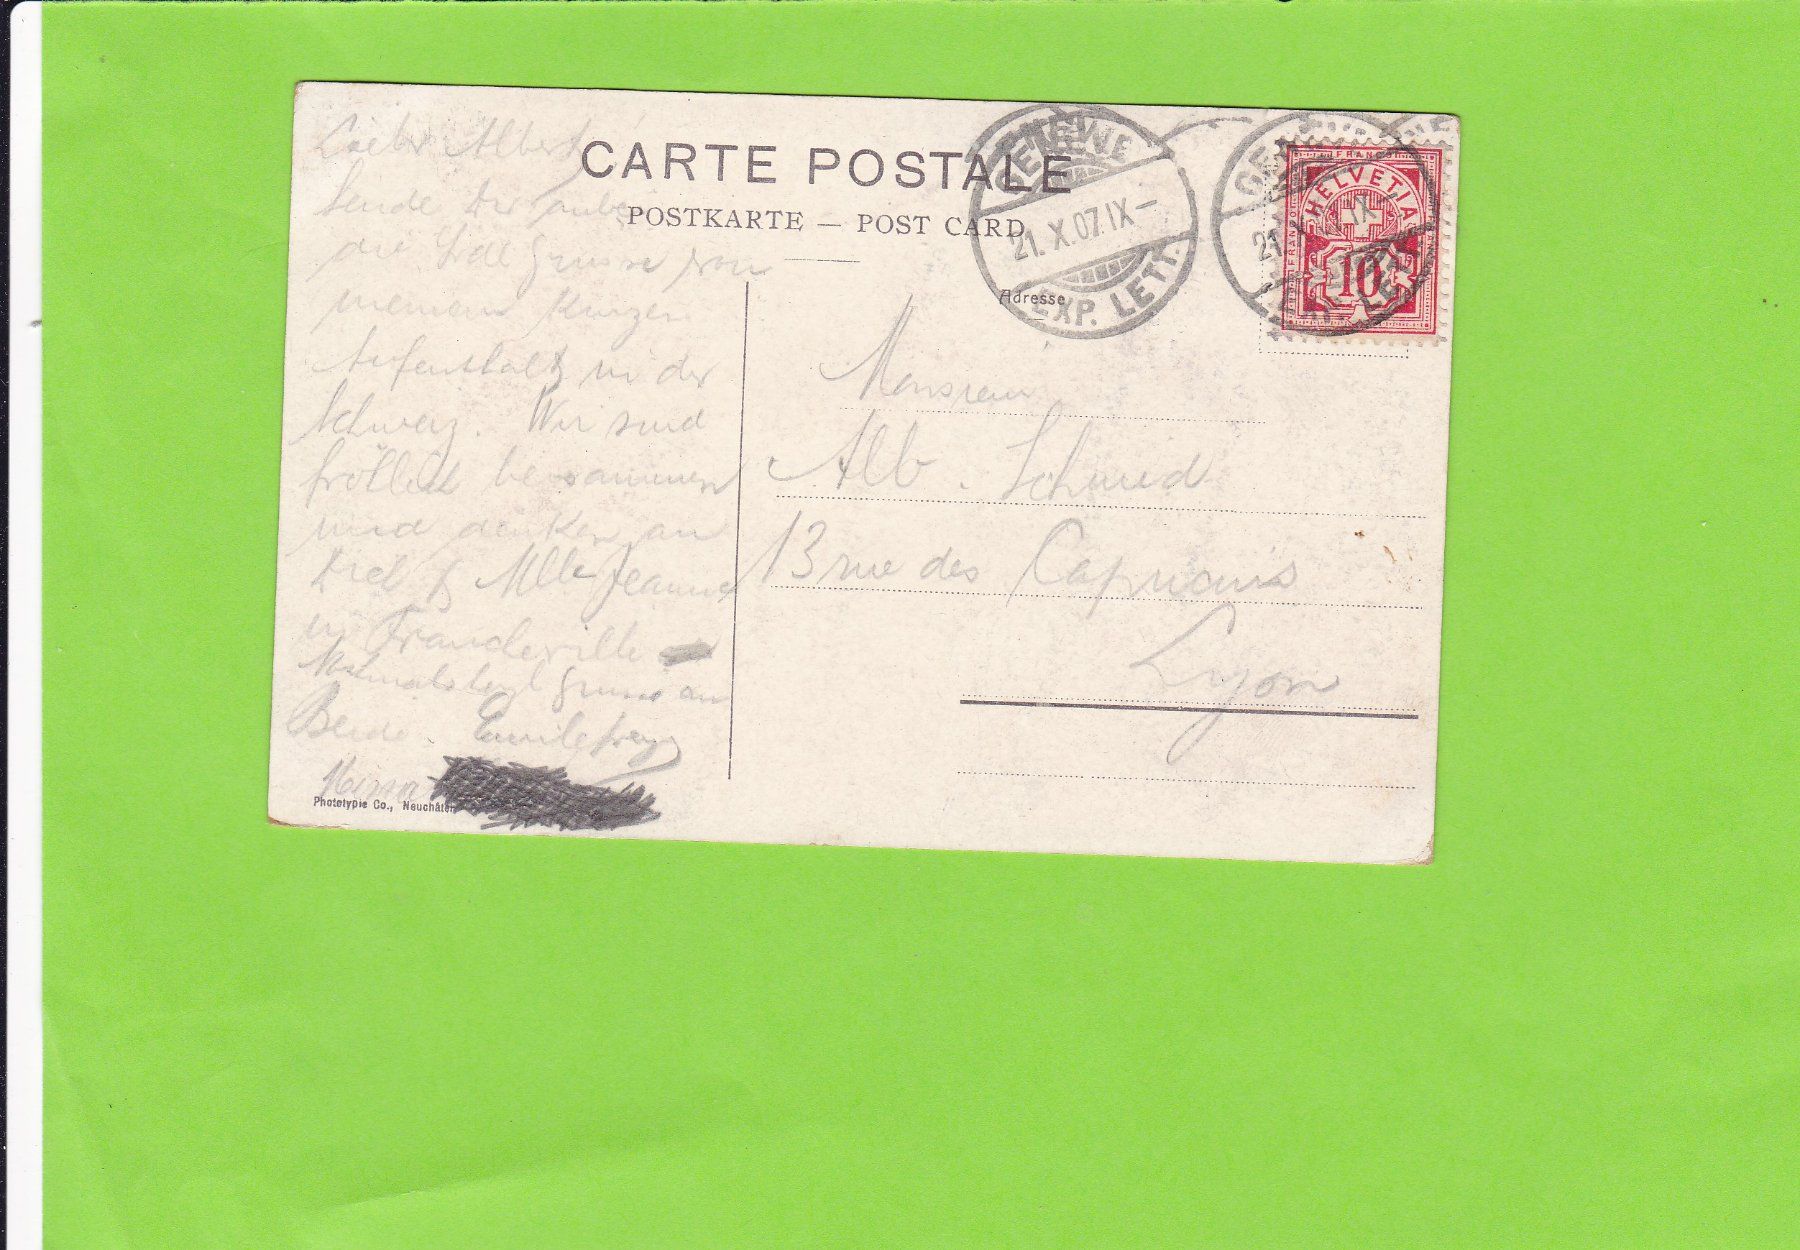 CARTE POSTALE
POSTKARTE — POST CARD
GENÈVE
21. X. 07. IX —
EXP. LETT.
21. X
IX —
FRANCO
HELVETIA
FRANCO
10
Adresse
Lieber Albert
Sende Dir anbei
die Grüsse von
meinem Kurzen
Aufenthalt in der
Schweiz. Wir sind
fröhlich beisammen
und denken an
Dich & Mlle Jeanne
in Francheville
Grüsse an
Beide. Emile Frey
Monsieur
Alb. Schmid
13 rue des Capucins
Lyon
Phototypie Co., Neuchâtel